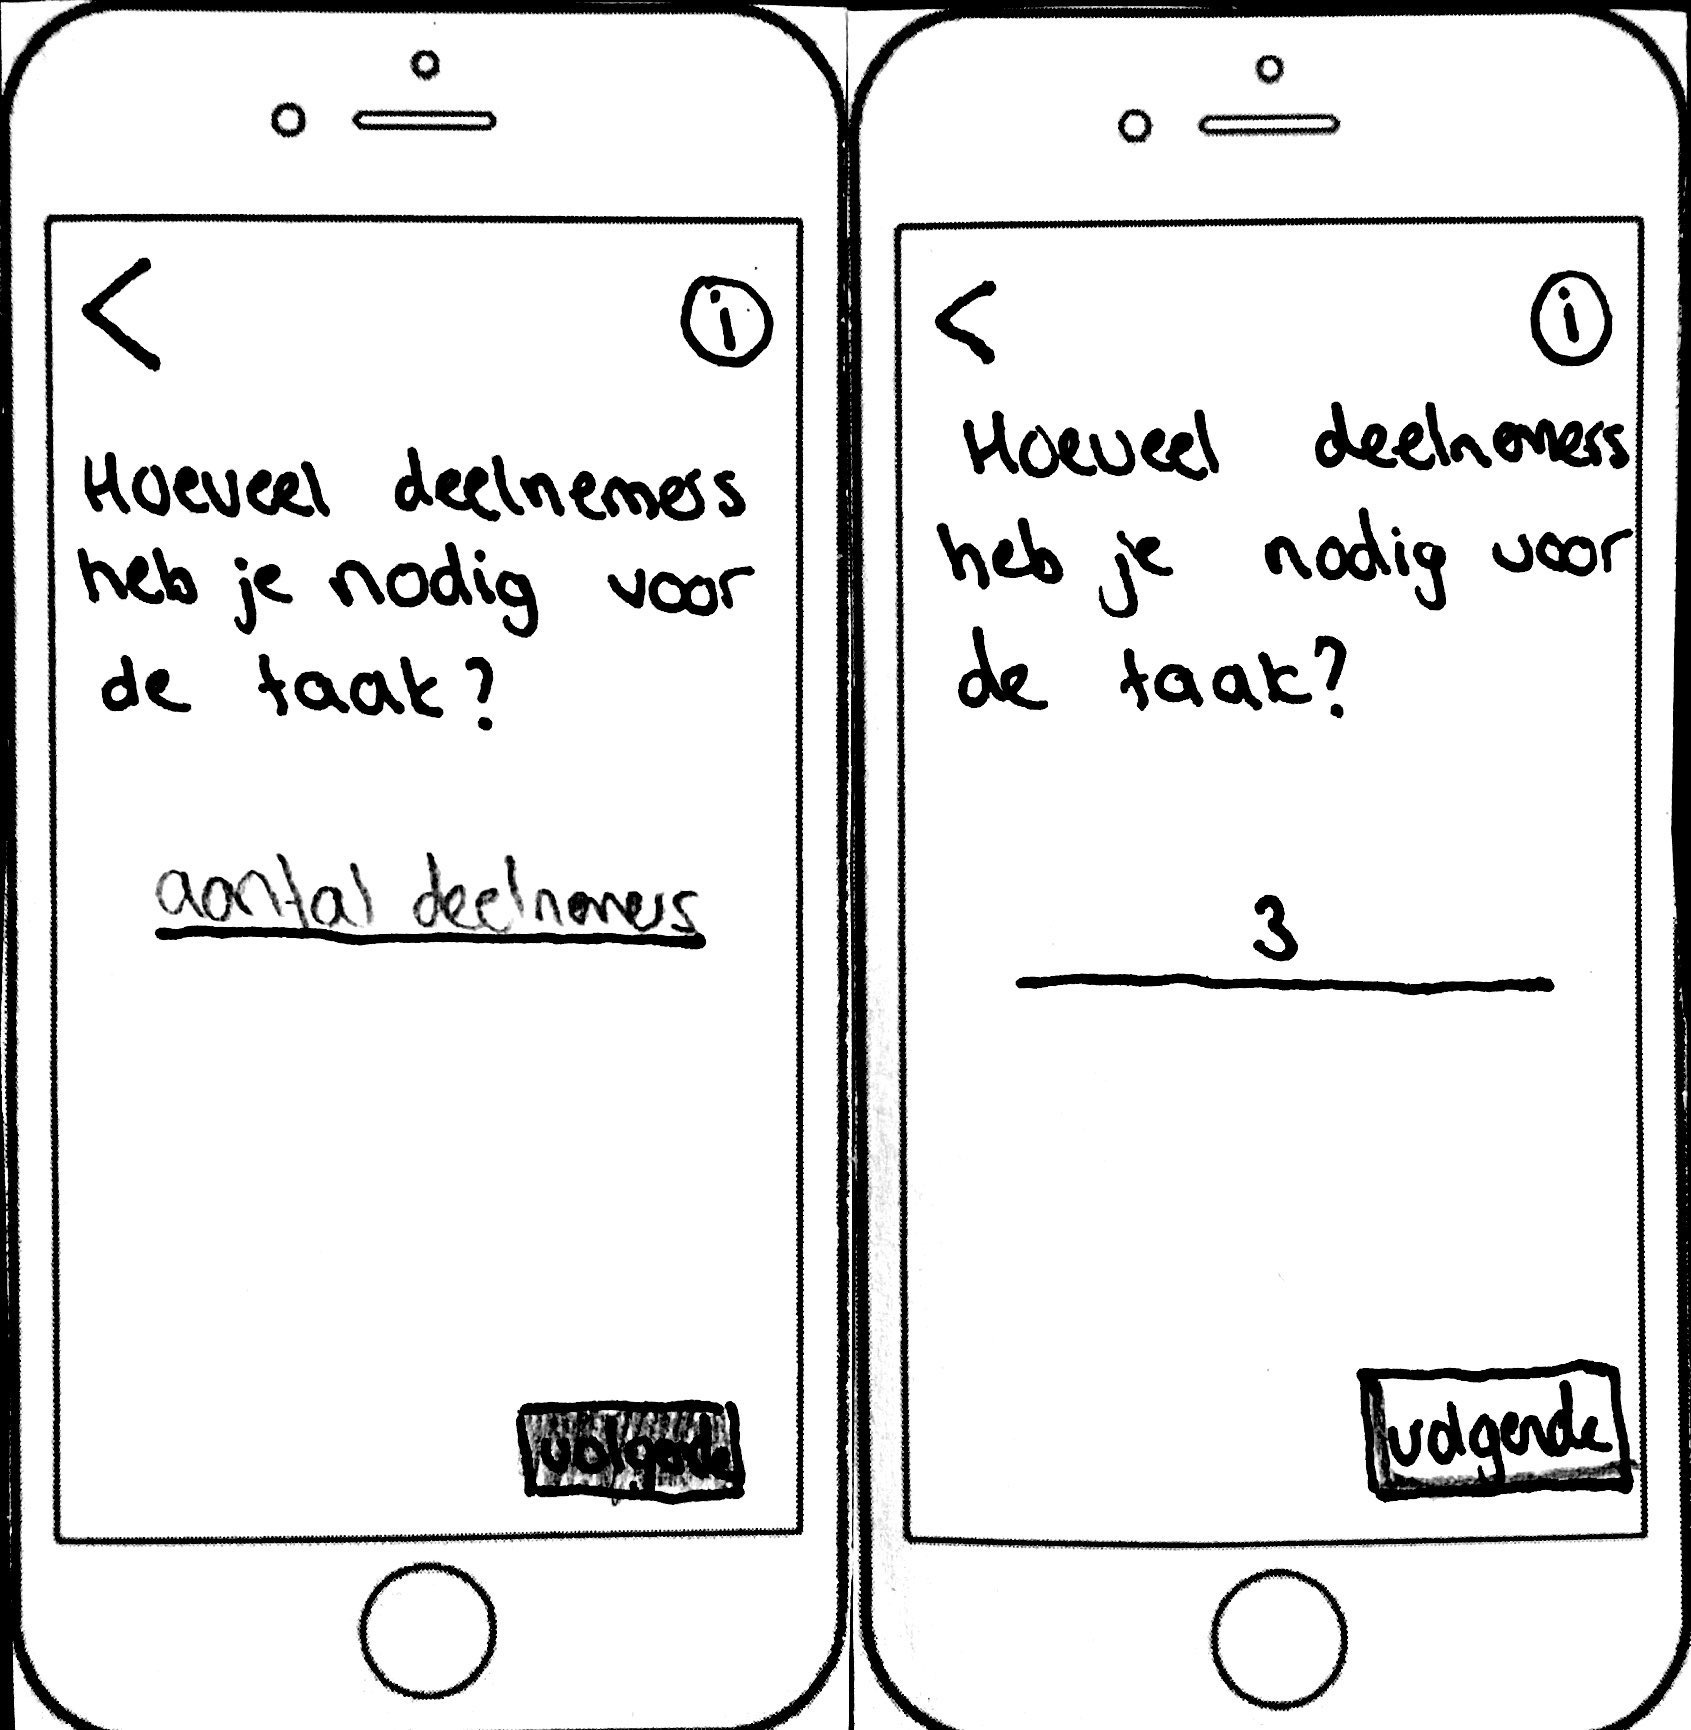 <
i
Hoeveel deelnemers
heb je nodig voor
de taak?
aantal deelnemers
volgende
<
i
Hoeveel deelnemers
heb je nodig voor
de taak?
3
volgende